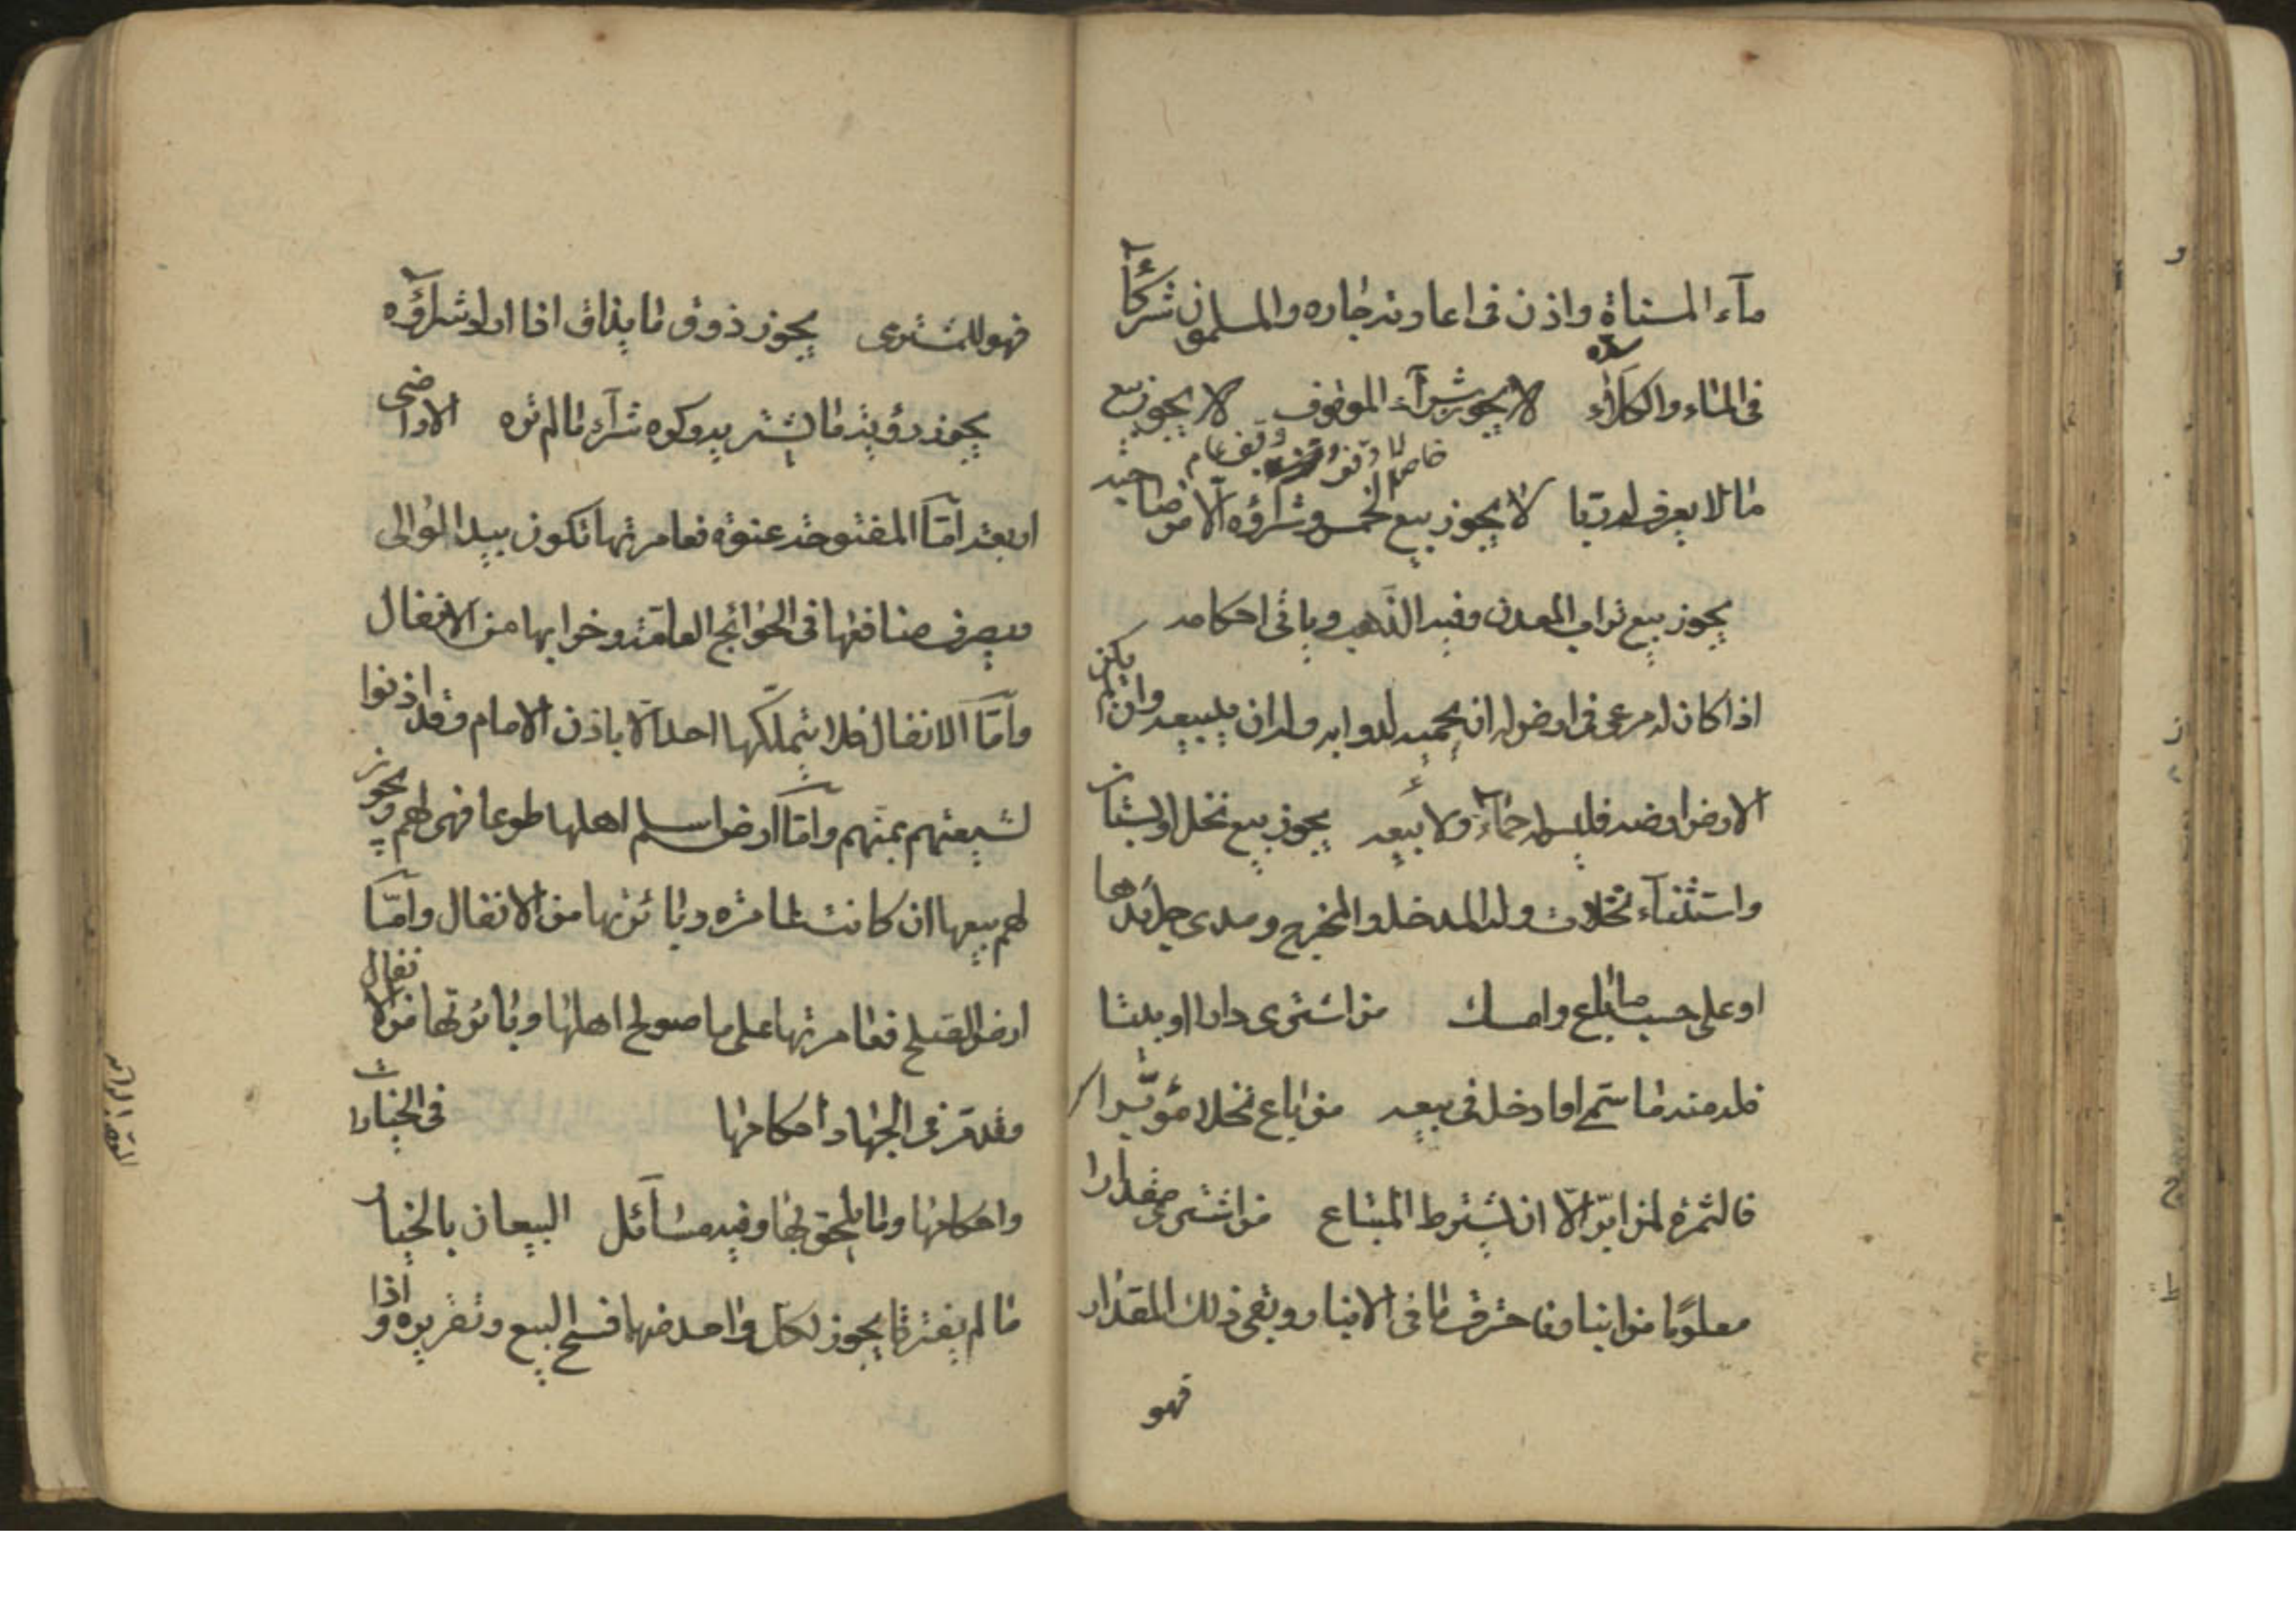 مآء المسناة واذن فی اعارته جاره والمسلمون شركآء
فی المآء والكلاء لا يجوز شرآء الموقوف لا يجوز بيع
ما لا يعرف له ربا لا يجوز بيع الخمس وشراؤه الّا من صاحبه
يجوز بيع تراب المعدن وفيه الذّهب ويأتی احكامه
اذا كان له مرعی فی ارض له ان يحميه لدوابه وله ان يبيعه وان لم يكن
الارض ارضه فليس له حماء ولا بيعه يجوز بيع نخل او بستان
واستثنآء نخلات وله المدخل والمخرج ومدی جرايدها
او علی حسب ما باع وامسك من اشتری دارا او بيتا
فله منه ما ستم او ما دخل فی بيعه من باع نخلا مؤبّرا
فالثمرة لمن ابّر الّا ان يشترط المبتاع من اشتری مقدارا
معلوما من انبار فاحترق ما فی الانبار وبقی ذلك المقدار
فهو
فهو للمشتری يجوز ذوق ما يذاق اذا اراد شراؤه
يجوز رؤية ما يشتريه وكره شرآء ما لم تره الاراضی
اربعة امّا المفتوحة عنوة فعامرتها تكون بيد الوالی
فيصرف منافعها فی الحوائج العامّة وخرابها من الانفال
وامّا الانفال فلا يتملّكها احد الّا باذن الامام وقد اذنوا
لشيعتهم بمنّهم وامّا ارض اسلم اهلها طوعا فهی لهم ويجوز
لهم بيعها ان كانت عامرة وبائرتها من الانفال وامّا
ارض الصلح فعامرتها علی ما صولح اهلها وبائرتها من الانفال
وقد مرّ فی الجهاد احكامها فی الخيارات
واحكامها وما يلحق بها وفيه مسآئل البيعان بالخيار
ما لم يفترقا يجوز لكلّ واحد منهما فسخ البيع وتقريره واذا